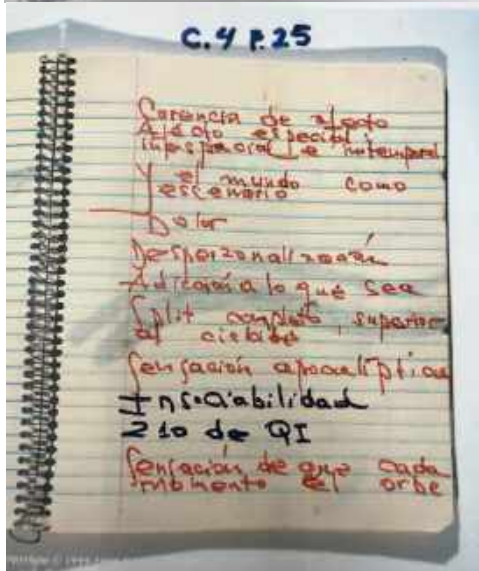 C.4 P.25
Carencia de afecto
Afecto especial
inespacial e intemporal
Y el mundo como
escenario
Dolor
Despersonalización
Adicción a lo que sea
Split completo, superior
al
Sensación apocalíptica
Insociabilidad
210 de QI
Sensación de que cada
momento el orbe